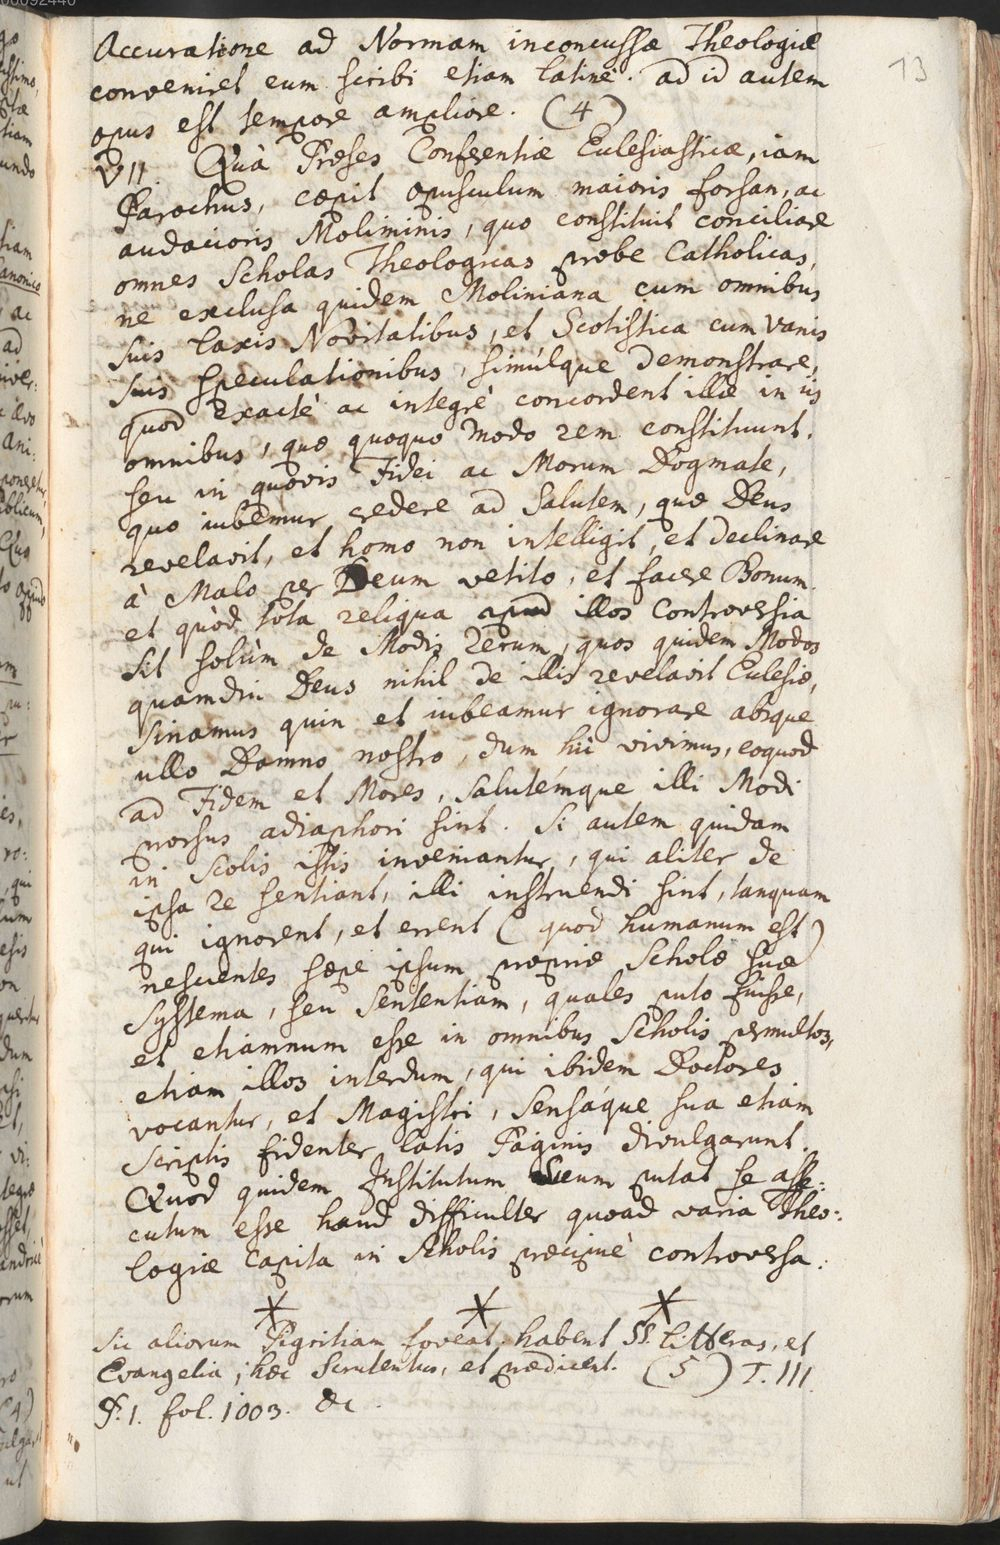 13
Accuratione ad Normam inconcussæ Theologiæ
conveniret eum scribi etiam latinè. ad id autem
opus est tempore ampliore. (4)
VII. Quà Præses Conferentiæ Eclesiasticæ, iam
Parochus, cæpit opusculum maioris forsan, ac
audacioris Moliminis, quo constituit conciliare
omnes Scholas Theologicas probe Catholicas,
ne exclusa quidem Moliniana cum omnibus
suis laxis Novitatibus, et Scotistica cum vanis
suis speculationibus, simúlque demonstrare,
quod exactè ac integrè concordent illæ in iis
omnibus, quæ quoquo modo rem constituunt,
seu in quovis Fidei ac Morum Dogmate,
quo iubemur credere ad Salutem, quæ Deus
revelavit, et homo non intelligit, et declinare
à Malo per Deum vetito, et facere Bonum
et quòd tota reliqua apud illos Controversia
sit solùm de Modis rerum, quos quidem Modos
quamdiu Deus nihil de illis revelavit Eclesiæ,
sinamus quin et iubeamur ignorare absque
ullo Damno nostro, dum hìc vivimus, eoquod
ad Fidem et Mores, Salutémque illi Modi
prorsus adiaphori sint. Si autem quidam
in Scolis istis inveniantur, qui aliter de
ipsa re sentiant, illi instruendi sint, tanquam
qui ignorent, et errent (quod humanum est)
nescientes sæpe ipsum propriæ Scholæ suæ
Systema, seu Sententiam, quales puto fuisse,
et etiamnum esse in omnibus Scholis permultos,
etiam illos interdum, qui ibidem Doctores
vocantur, et Magistri, Sensáque sua etiam
scriptis fidenter latis Paginis divulgarunt.
Quod quidem Institutum suum putat se asse:
cutum esse haud difficulter quoad varia Theo:
logiæ Capita in Scholis præcipuè controversa.
* * *
sic aliorum Pigritiam foveat. habent SS. Litteras, et
Evangelia; hæc scrutentur, et prædicent. (5) T. III.
P. 1. fol. 1003. &c.